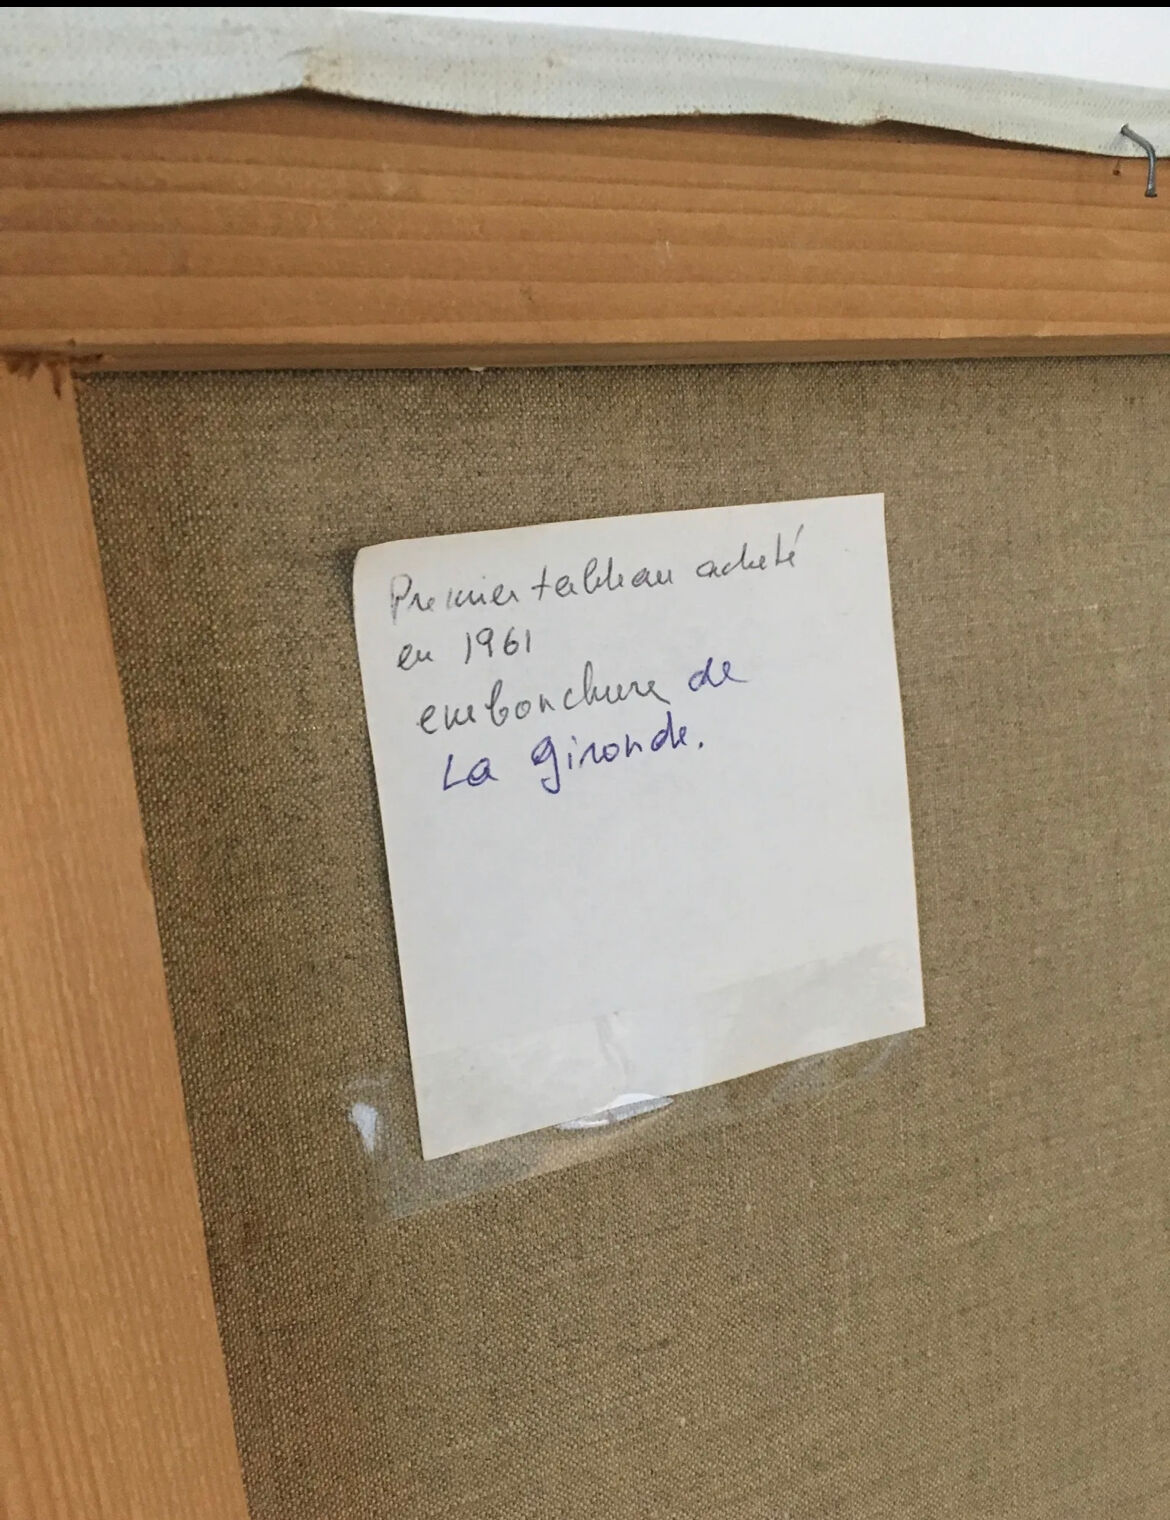 Premier tableau acheté
en 1961
embouchure de
La Gironde.